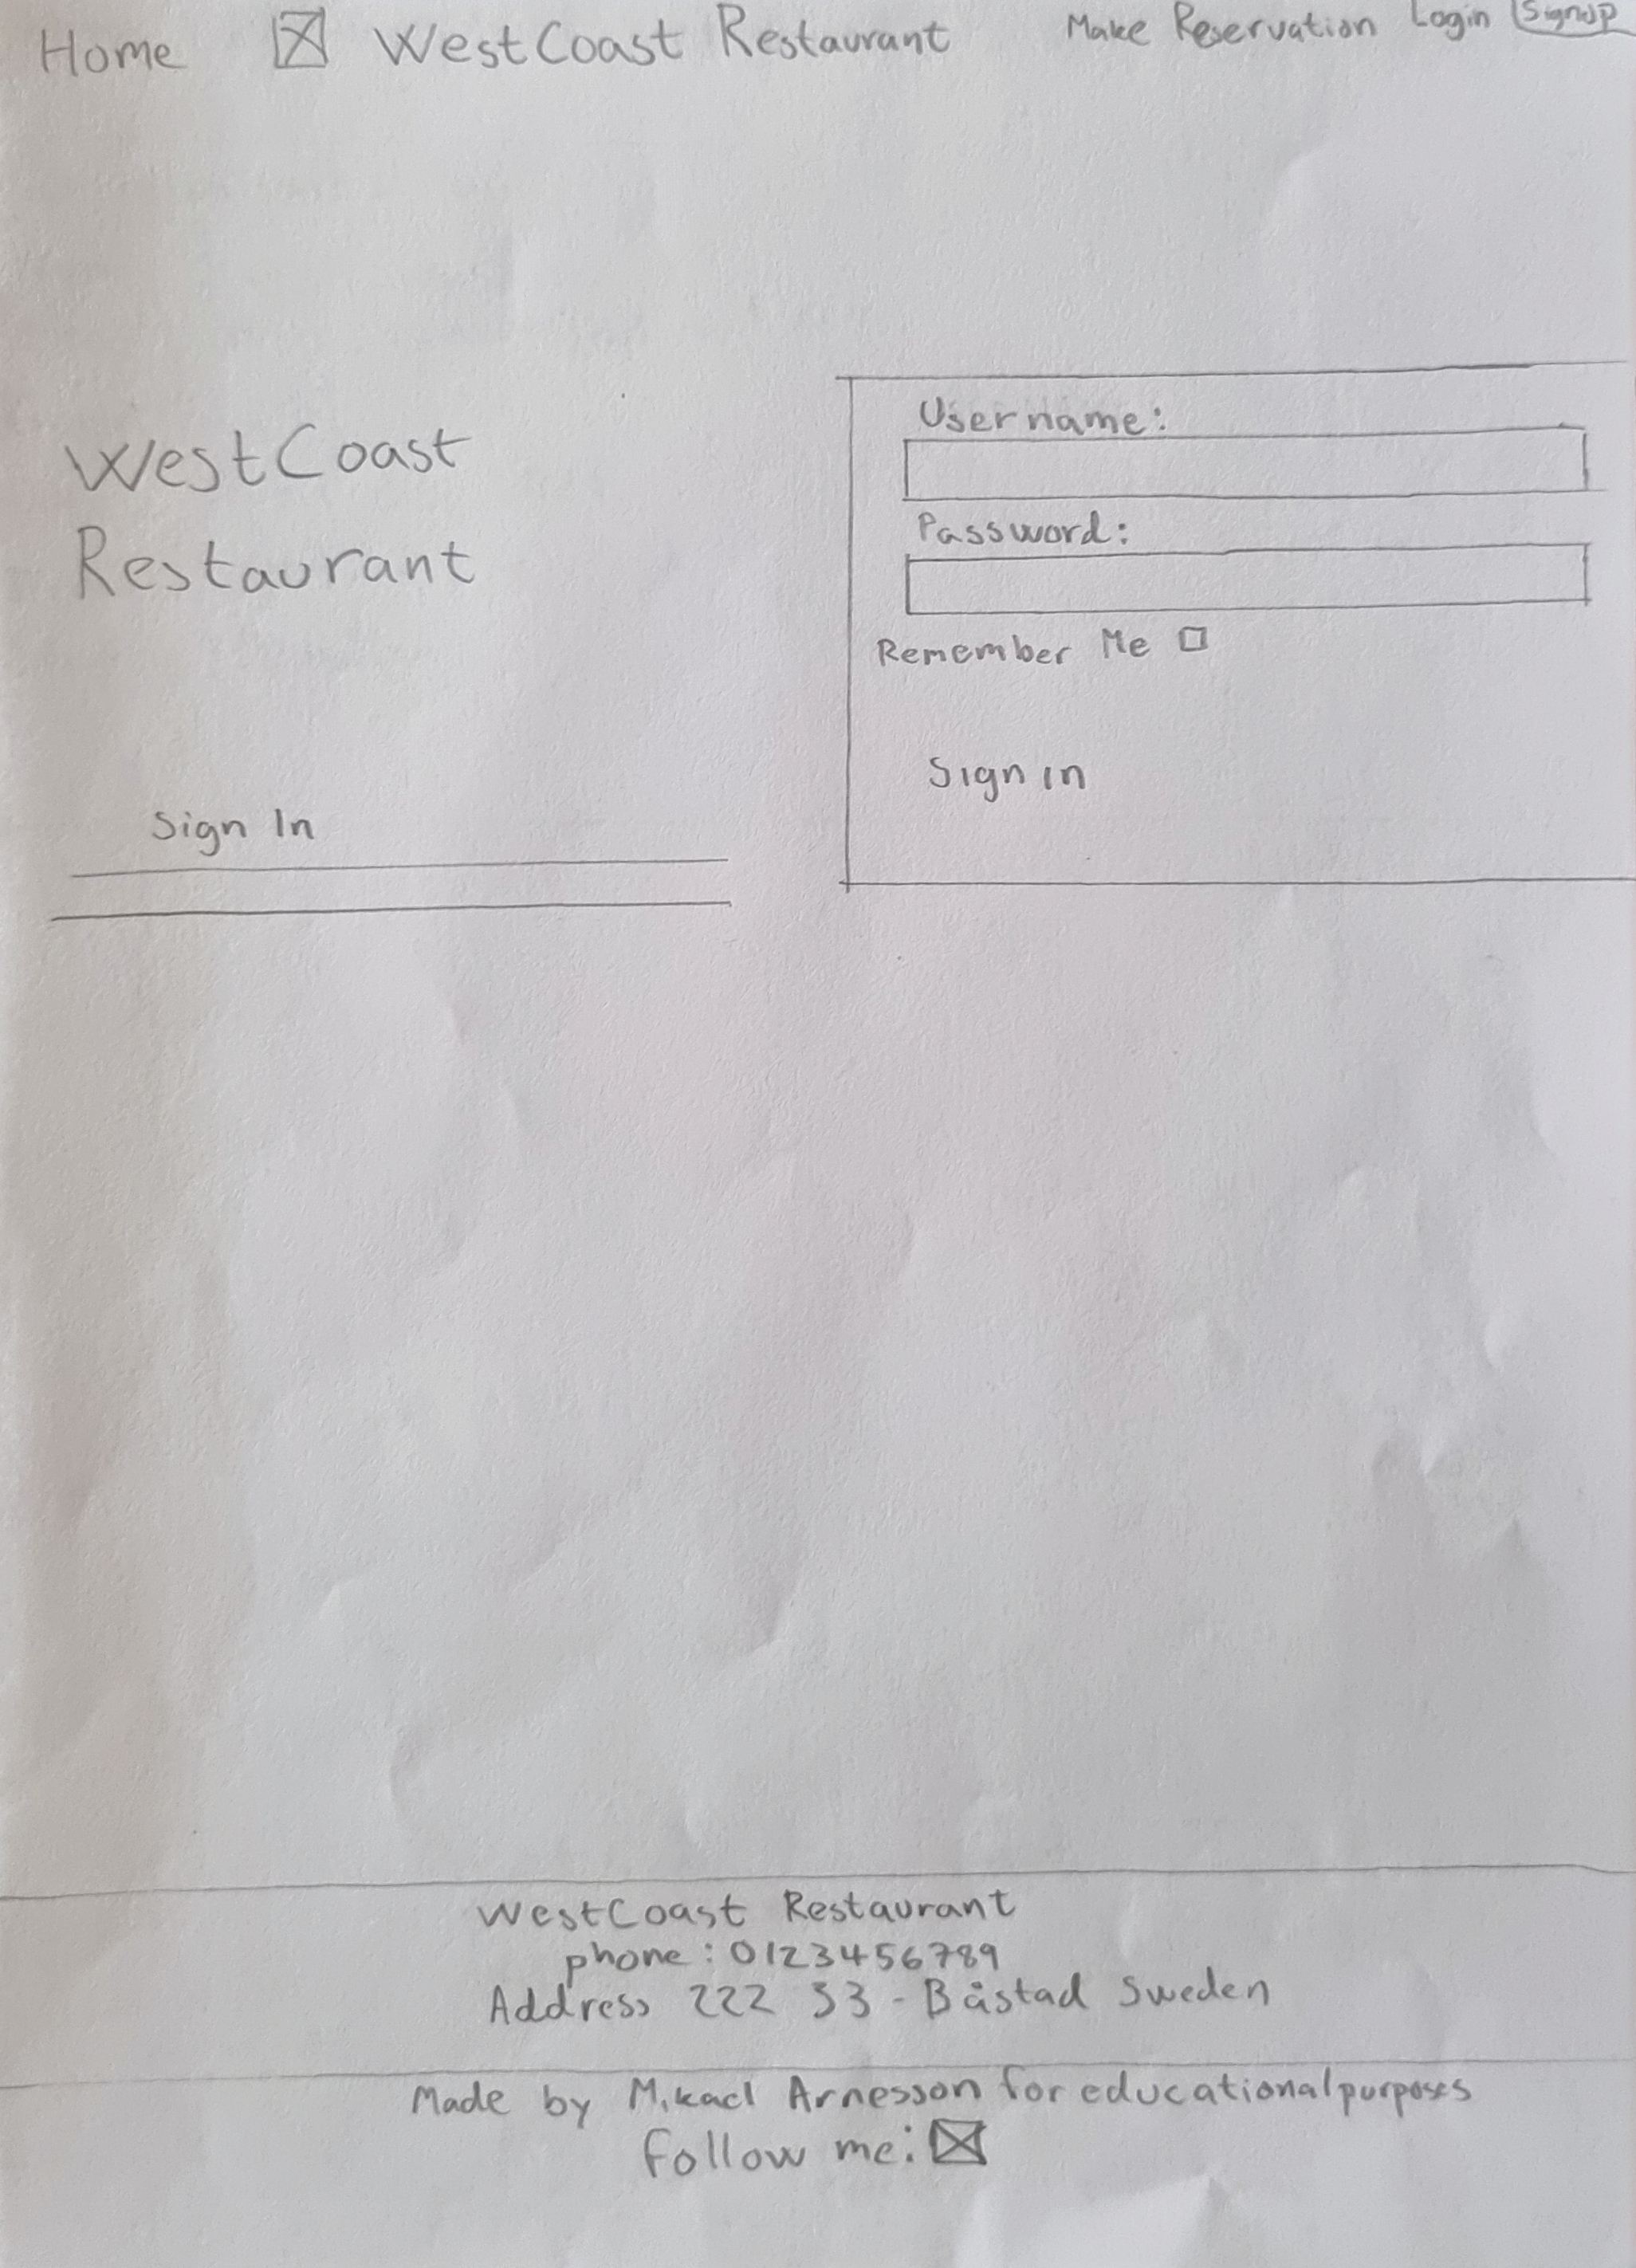 Home WestCoast Restaurant Make Reservation Login Signup
WestCoast
Restaurant
Sign In
Username:
Password:
Remember Me
Sign in
WestCoast Restaurant
phone: 0123456789
Address 222 33 - Båstad Sweden
Made by Mikael Arnesson for educational purposes
Follow me: